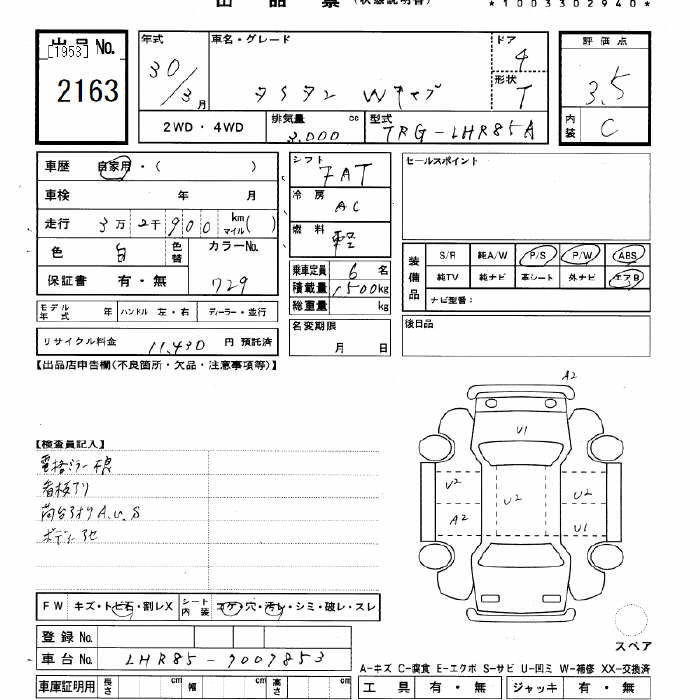 出品票 (状態説明書)
*1003302940*
出品No.
[1953]
2163
年式
30/3月
車名・グレード
タイタン Wキャブ
ドア 4
形状 T
評価点
3.5
内装 C
2WD・4WD
排気量 3,000 cc
型式 TRG-LHR85A
車歴 自家用・( )
車検 年 月
走行 3万2千900 km マイル( )
色 白 色替 カラーNo. 729
保証書 有・無
シフト 7AT
冷房 AC
燃料 軽
乗車定員 6名
積載量 1,500kg
総重量 kg
セールスポイント
装備品
S/R 純A/W P/S P/W ABS
純TV 純ナビ 革シート 外ナビ エアB
ナビ型番:
モデル年式 年 ハンドル 左・右 ディーラー・並行
リサイクル料金 11,430 円 預託済
名変期限 月 日
後日品
【出品店申告欄(不良箇所・欠品・注意事項等)】
【検査員記入】
電格ミラー不良
看板アリ
荷台アオリA.U.S
A2
U1
U2 U2 U2
A2 U1
FW キズ・トビ石・割レX シート内装 コゲ・穴・汚レ・シミ・破レ・スレ
スペア
登録No.
車台No. LHR85-7007853
A-キズ C-腐食 E-エクボ S-サビ U-凹ミ W-補修 XX-交換済
車庫証明用 長さ cm 幅 cm 高さ cm 工具 有・無 ジャッキ 有・無